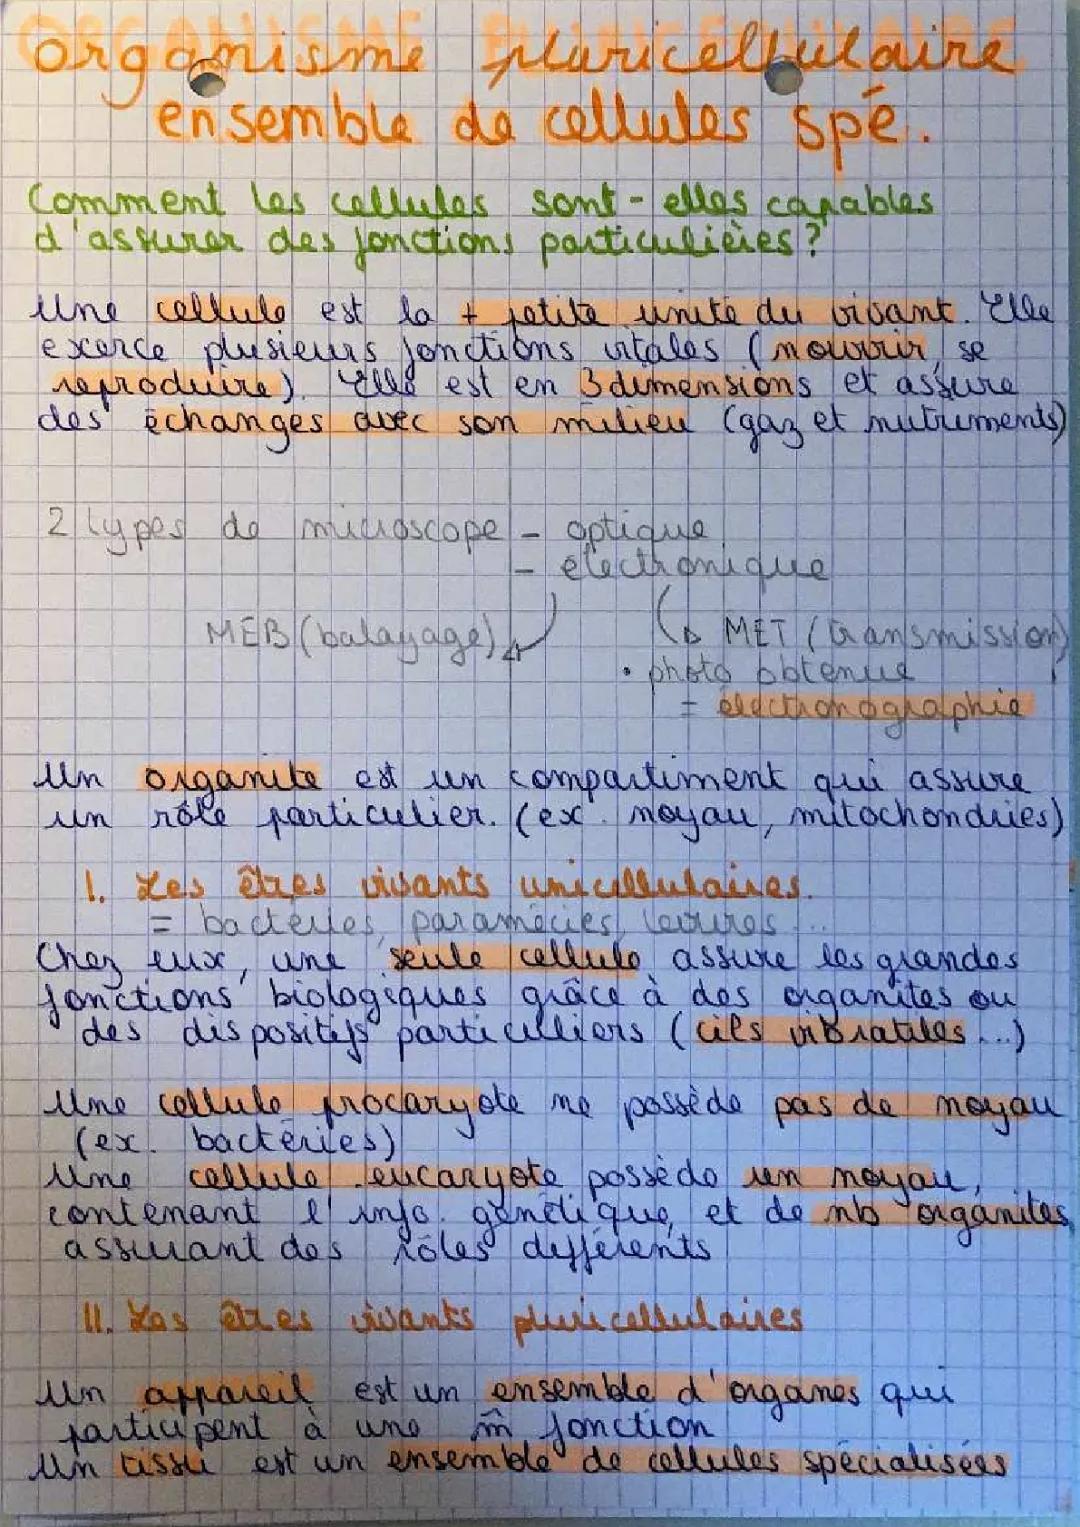 organisme pluricellulaire
ensemble de cellules spé.
Comment les cellules sont-elles capables
d'assurer des fonctions particulières ?
Une cellule est la + petite unité du vivant. Elle
exerce plusieurs fonctions vitales (nourrir, se
reproduire). Elle est en 3 dimensions et assure
des échanges avec son milieu (gaz et nutriments)
2 types de microscope - optique
- électronique
MEB (balayage) MET (transmission)
• photo obtenue
= électronographie
Un organite est un compartiment qui assure
un rôle particulier. (ex. noyau, mitochondries)
I. Les êtres vivants unicellulaires.
= bactéries, paramécies, levures...
Chez eux, une seule cellule assure les grandes
fonctions biologiques grâce à des organites ou
des dispositifs particuliers (cils vibratiles...)
Une cellule procaryote ne possède pas de noyau
(ex. bactéries)
Une cellule eucaryote possède un noyau,
contenant l'info. génétique, et de nb organites
assurant des rôles différents
II. Les êtres vivants pluricellulaires
Un appareil est un ensemble d'organes qui
participent à une m̂ fonction
Un tissu est un ensemble de cellules spécialisées